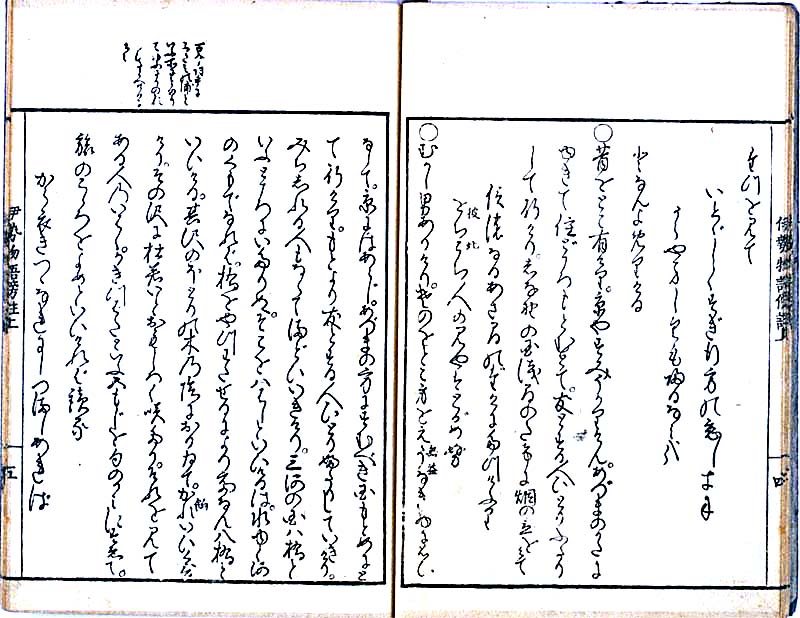 伊勢物語傍註上
四
つをみて
いとゞしくすぎ行方の恋しきに
うらやましくも帰るなみかな
となんよめりける
○昔をとこ有けり。京やすみうかりけん。あづまのかたに
ゆきて住どころもとむとて。友とする人ひとりふたり
して行けり。しなのの国浅間のたけに烟の立をみて
信濃なるあさまのたけにたつけふり
彼此
をちこち人のみやはとがめぬ
○むかし男ありけり。そのをとこ身をえうなき物に思ひ
無益
なして。京にはあらじ。あづまの方にすむべき国もとめにと
て行けり。もとより友とする人ひとりふたりしていきけり。
みちしれる人もなくてまどひいきけり。三河の国八橋と
いふところにいたりぬ。そこを八はしといひけるは。水ゆく河
のくもでなれば。橋をやつわたせるによりてなん八橋と
いひける。其沢のほとりの木の陰におりゐて。かれいひくひ
けり。その沢に杜若いとおもしろく咲たり。それを見て
ある人のいはく。かきつばたといふ五もじを句のかみにすゑて。
旅のこゝろをよめといひければ読る
から衣きつゝなれにしつましあれば
伊勢物語傍註上
五